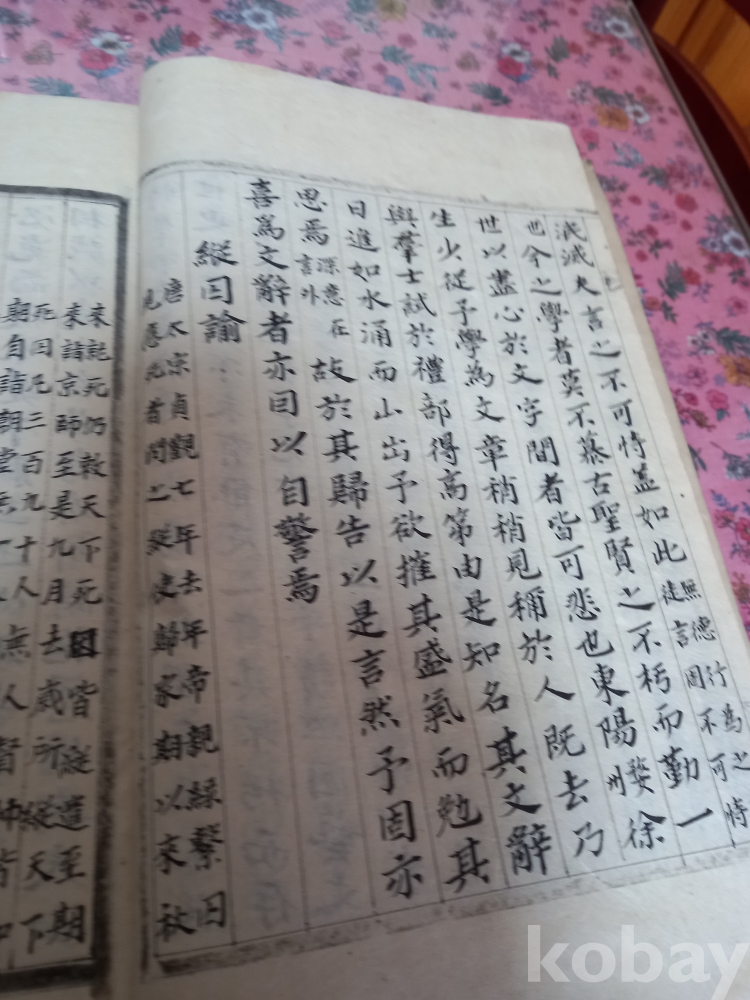 泯滅夫言之不可恃蓋如此無德行為之徒言固不可恃
也今之學者莫不慕古聖賢之不朽而勤一
世以盡心於文字間者皆可悲也東陽婺州徐
生少從予學為文章稍稍見稱於人既去乃
與羣士試於禮部得高第由是知名其文辭
日進如水涌而山出予欲摧其盛氣而勉其
思焉深意在言外故於其歸告以是言然予固亦
喜為文辭者亦因以自警焉
縱囚論
唐太宗貞觀七年去年帝親録繫囚
見應死者閔之縱使歸家期以來秋
來就死仍敕天下死囚皆縱遣至期
來詣京師至是九月去歲所縱天下
死囚凡三百九十人無人督帥皆
期自詣朝堂無一
kobay